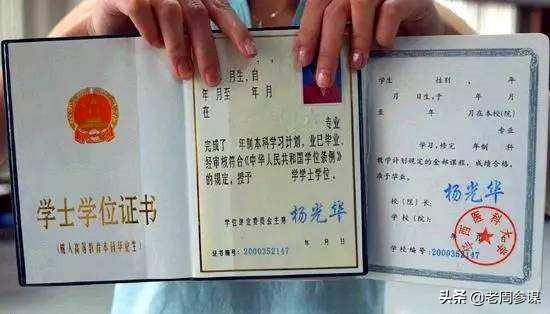 学士学位证书
(成人高等教育本科毕业生)
年 月生,自
年 月至 年 月
在
专业
完成了 年制本科学习计划,业已毕业,
经审核符合《中华人民共和国学位条例》
的规定,授予 学学士学位。
学位评定委员会主席 杨光华
证书编号: 2000352147 年 月 日
学生 性别 , 年
月 日生,于 年
月至 年 月在本校(院)
专业
学习,修完 年 制 科
教学计划规定的全部课程,成绩合格,
准予毕业。
校(院)长: 杨光华
学校(院):
年 月 日
学校编号: 2000352147
华西医科大学
头条 @老周参谋